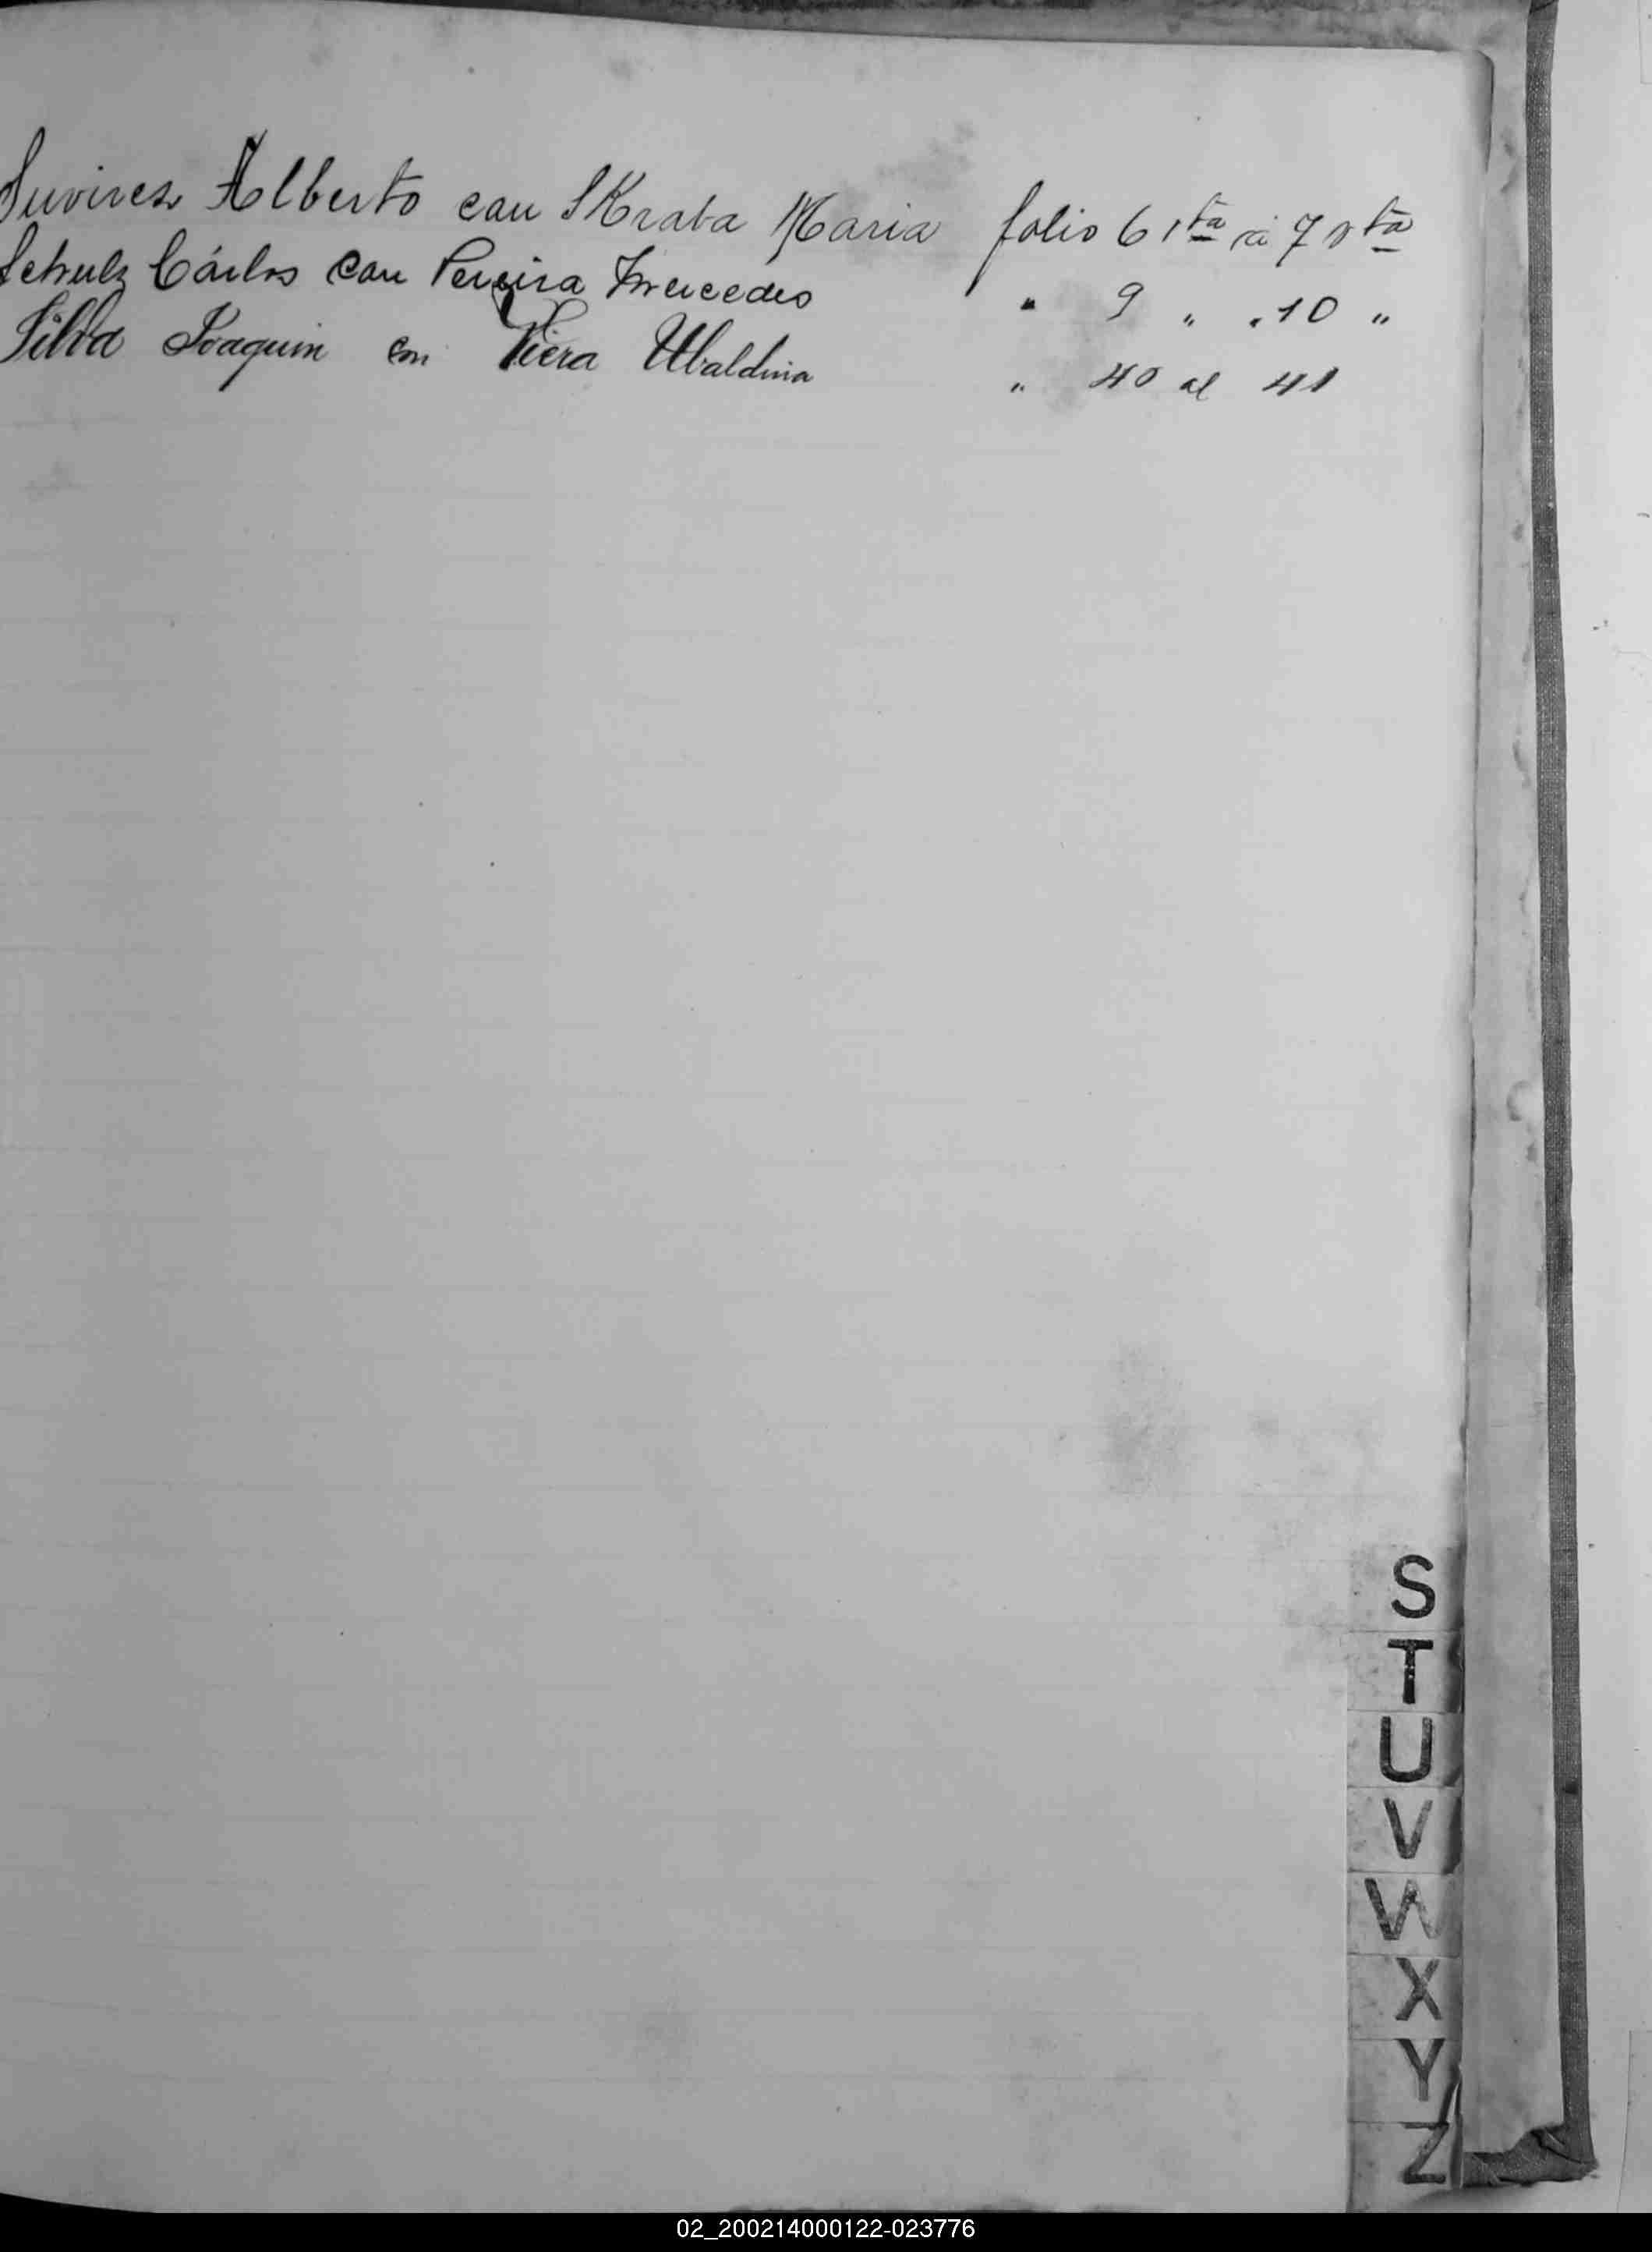 Suvires Alberto con SKraba Maria folio 6 vta á 7 vta
Schulz Cárlos con Pereira Mercedes " 9 " " 10 "
Silva Joaquin con Viera Ubaldina " 40 al 41
S
T
U
V
W
X
Y
Z
02_200214000122-023776